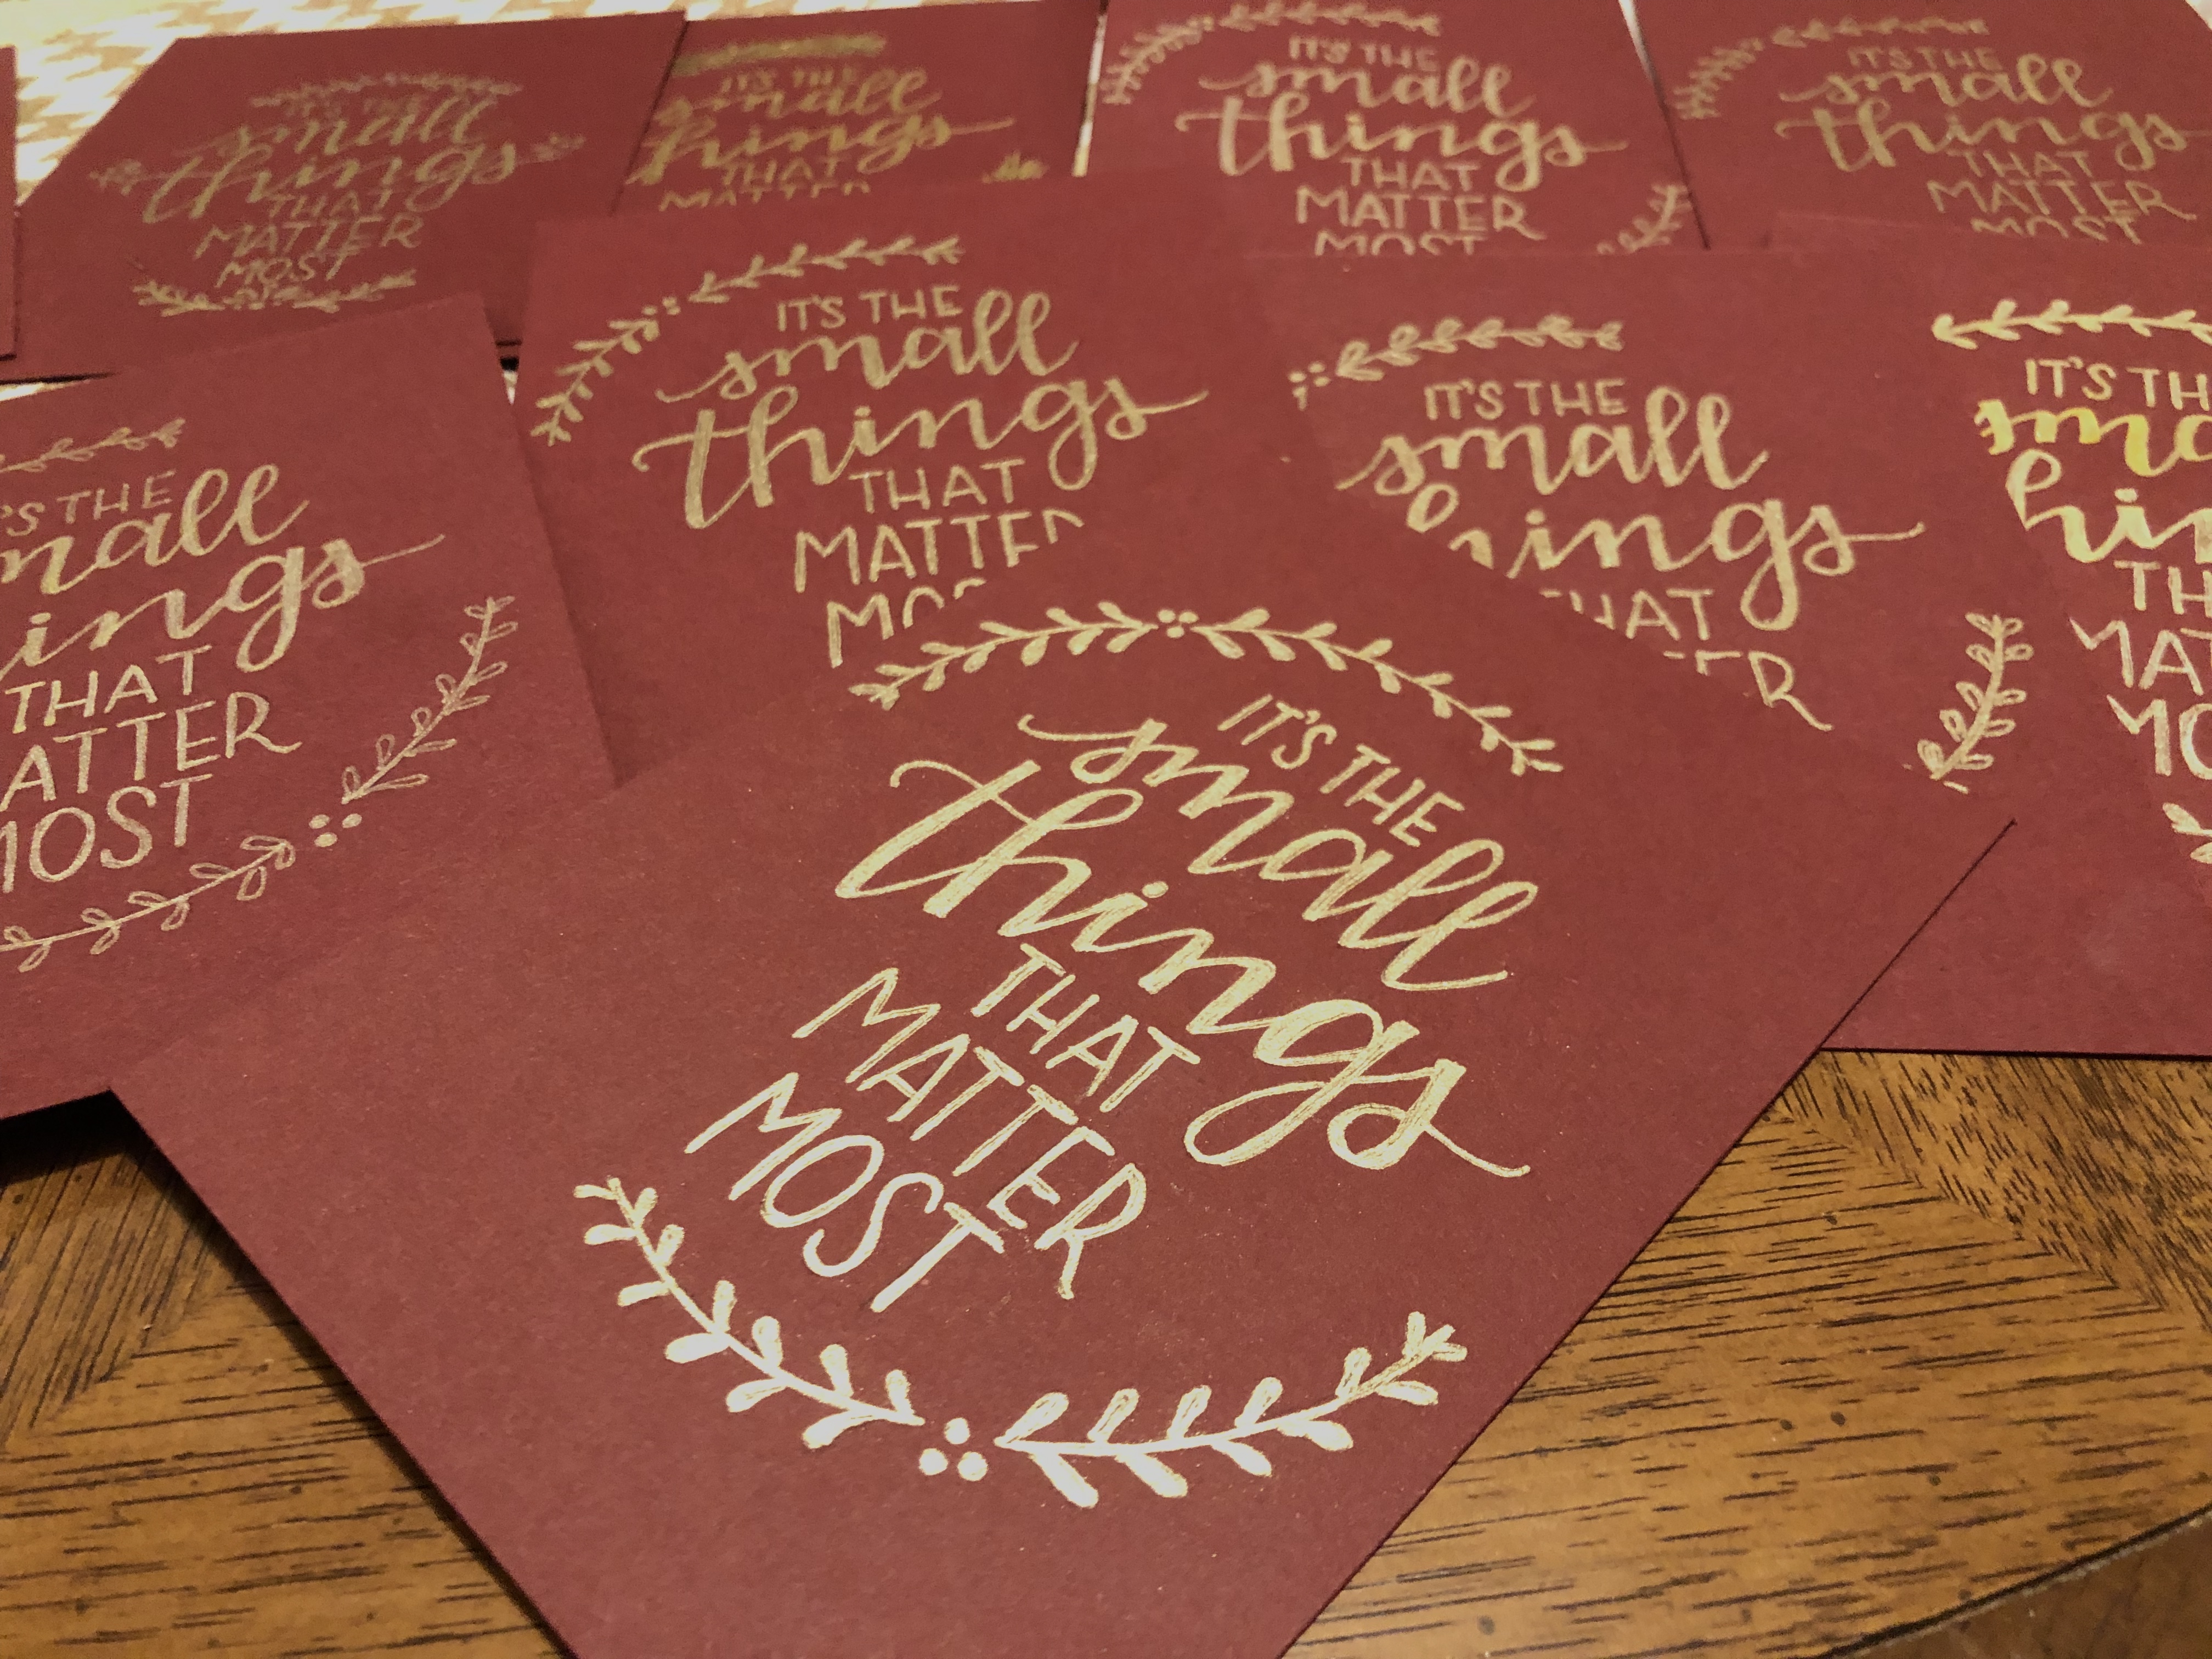 IT'S THE
small
things
THAT
MATTER
MOST
IT'S THE
small
hings
THAT
MATTER
IT'S THE
small
things
THAT
MATTER
MOST
IT'S THE
small
things
THAT
MATTER
MOST
IT'S THE
small
things
THAT
MATTER
IT'S THE
small
hings
THAT
IT'S TH
sma
hin
TH
MAT
MO
'S THE
mall
ings
THAT
ATTER
MOST
IT'S THE
small
things
THAT
MATTER
MOST